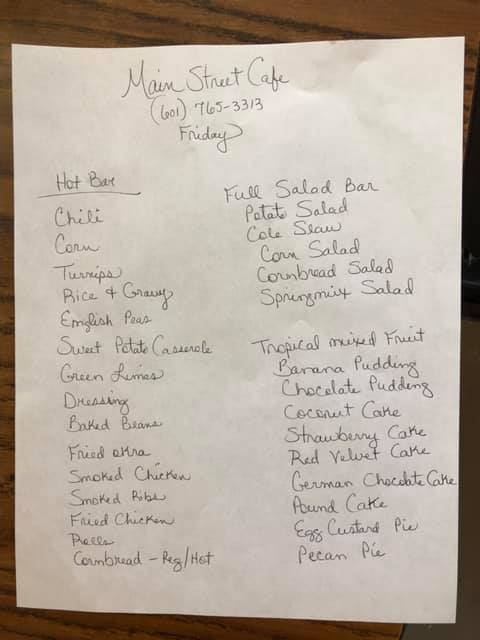 Main Street Cafe
(601) 765-3313
Friday
Hot Bar
Chili
Corn
Turnips
Rice & Gravy
English Peas
Sweet Potato Casserole
Green Limas
Dressing
Baked Beans
Fried okra
Smoked Chicken
Smoked Ribs
Fried Chicken
Rolls
Cornbread - Reg/Hot
Full Salad Bar
Potato Salad
Cole Slaw
Corn Salad
Cornbread Salad
Springmix Salad
Tropical mixed Fruit
Banana Pudding
Chocolate Pudding
Coconut Cake
Strawberry Cake
Red Velvet Cake
German Chocolate Cake
Pound Cake
Egg Custard Pie
Pecan Pie